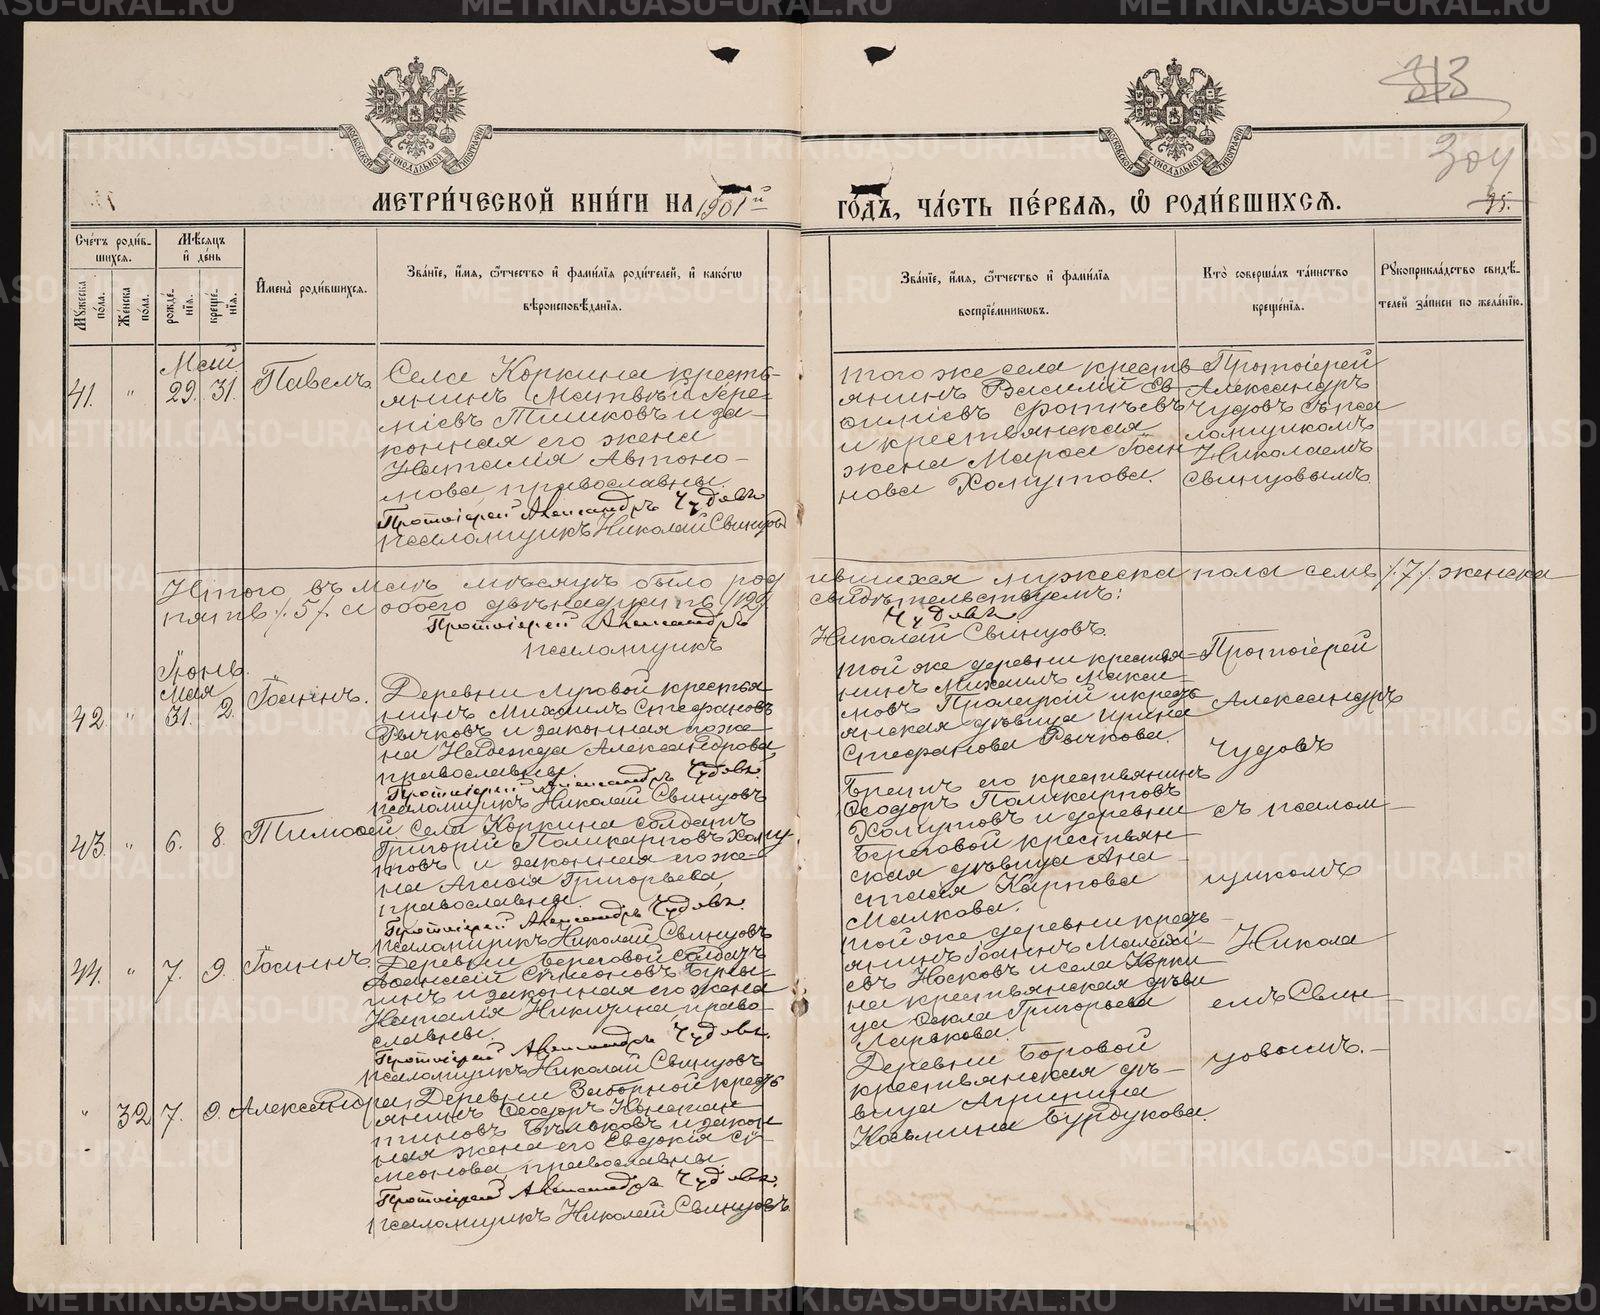 МЕТРИ́ЧЕСКОЙ КНИ́ГИ НА 1901й ГО́ДЪ, ЧА́СТЬ ПЕ́РВАЯ, Ѡ РОДИ́ВШИХСѦ.
313
304
95.
МОСКОВСКОЙ СѴНОДАЛЬНОЙ ТИПОГРАФІИ
МОСКОВСКОЙ СѴНОДАЛЬНОЙ ТИПОГРАФІИ
Счётъ роди́в-
шихся.
Мѣ́сяцъ
и́ де́нь
Му́жеска по́ла.
Же́нска по́ла.
рожде́-нїѧ.
креще́-нїѧ.
И҆мена̀ роди́вшихся.
Зва́нїе, и҆́мѧ, ѻ҆́тчество и҆ фами́лїѧ роди́телей, и҆ како́гѡ
вѣроисповѣ́данїѧ.
Зва́нїе, и҆́мѧ, ѻ҆́тчество и҆ фами́лїѧ
воспрїе́мникѡвъ.
Кто̀ соверша́лъ та́инство
креще́нїѧ.
Рꙋкоприкла́дство свидѣ́-
телей за́писи по жела́нїю.
Май
41. " 29. 31. Павелъ
Села Коркина кресть-
янинъ Матвѣй Іере-
міевъ Тишковъ и за-
конная его жена
Наталія Автоно-
мова, православны.
Протоіерей Александръ Чудовъ
псаломщикъ Николай Свинцовъ
того же села кресть-
янинъ Василій Ев-
фиміевъ Фотѣевъ
и крестьянская
жена Марѳа Іоан-
нова Хомутова.
Протоіерей
Александръ
Чудовъ съ пса
ломщикомъ
Николаемъ
Свинцовымъ.
Итого въ маѣ мѣсяцѣ было родившихся мужеска пола семь /7/ женска
пять /5/ и обоего двѣнадцать /12/ свидѣтельствуемъ:
Протоіерей Александръ Чудовъ
псаломщикъ Николай Свинцовъ.
Іюнь.
Мая
42 " 31. 2. Іоаннъ.
Деревни Луговой крестья-
нинъ Михаилъ Стефановъ
Рычковъ и законная его же-
на Надежда Александрова,
православны.
Протоіерей Александръ Чудовъ.
псаломщикъ Николай Свинцовъ
той же деревни крестья-
нинъ Михаилъ Макси-
мовъ Пролецкій и кресть-
янская дѣвица Ирина
Стефанова Рычкова.
Протоіерей
Александръ
Чудовъ
съ псалом-
щикомъ
Никола
емъ Свин-
цовымъ.-
43. " 6. 8. Тимоѳей
Села Коркина солдатъ
Григорій Поликарповъ Хому
товъ и законная его же-
на Агаѳія Григорьева,
православны.
Протоіерей Александръ Чудовъ.
псаломщикъ Николай Свинцовъ
Братъ его крестьянинъ
Ѳеодоръ Поликарповъ
Хомутовъ и деревни
Береговой крестьян-
ская дѣвица Ана-
стасія Карпова
Малкова.
44. " 7. 9. Іоаннъ
Деревни Береговой солдатъ
Аѳанасій Симеоновъ
и законная его жена
Наталія Никитина право-
славны.
Протоіерей Александръ Чудовъ.
псаломщикъ Николай Свинцовъ
той же деревни кресть-
янинъ Іоаннъ
Носковъ и села Корки-
на крестьянская дѣви
ца Ѳекла Григорьева
Ларькова.
" 32 7. 9. Александра
Деревни Заборной кресть
янинъ Ѳеодоръ Констан-
тиновъ Бѣлковъ и закон
ная жена его Евдокія Си-
меонова, православны.
Протоіерей Александръ Чудовъ.
псаломщикъ Николай Свинцовъ.
Деревни Боровой
крестьянская дѣ-
вица Агрипина
Косьмина Бурдукова.
METRIKI.GASO-URAL.RU